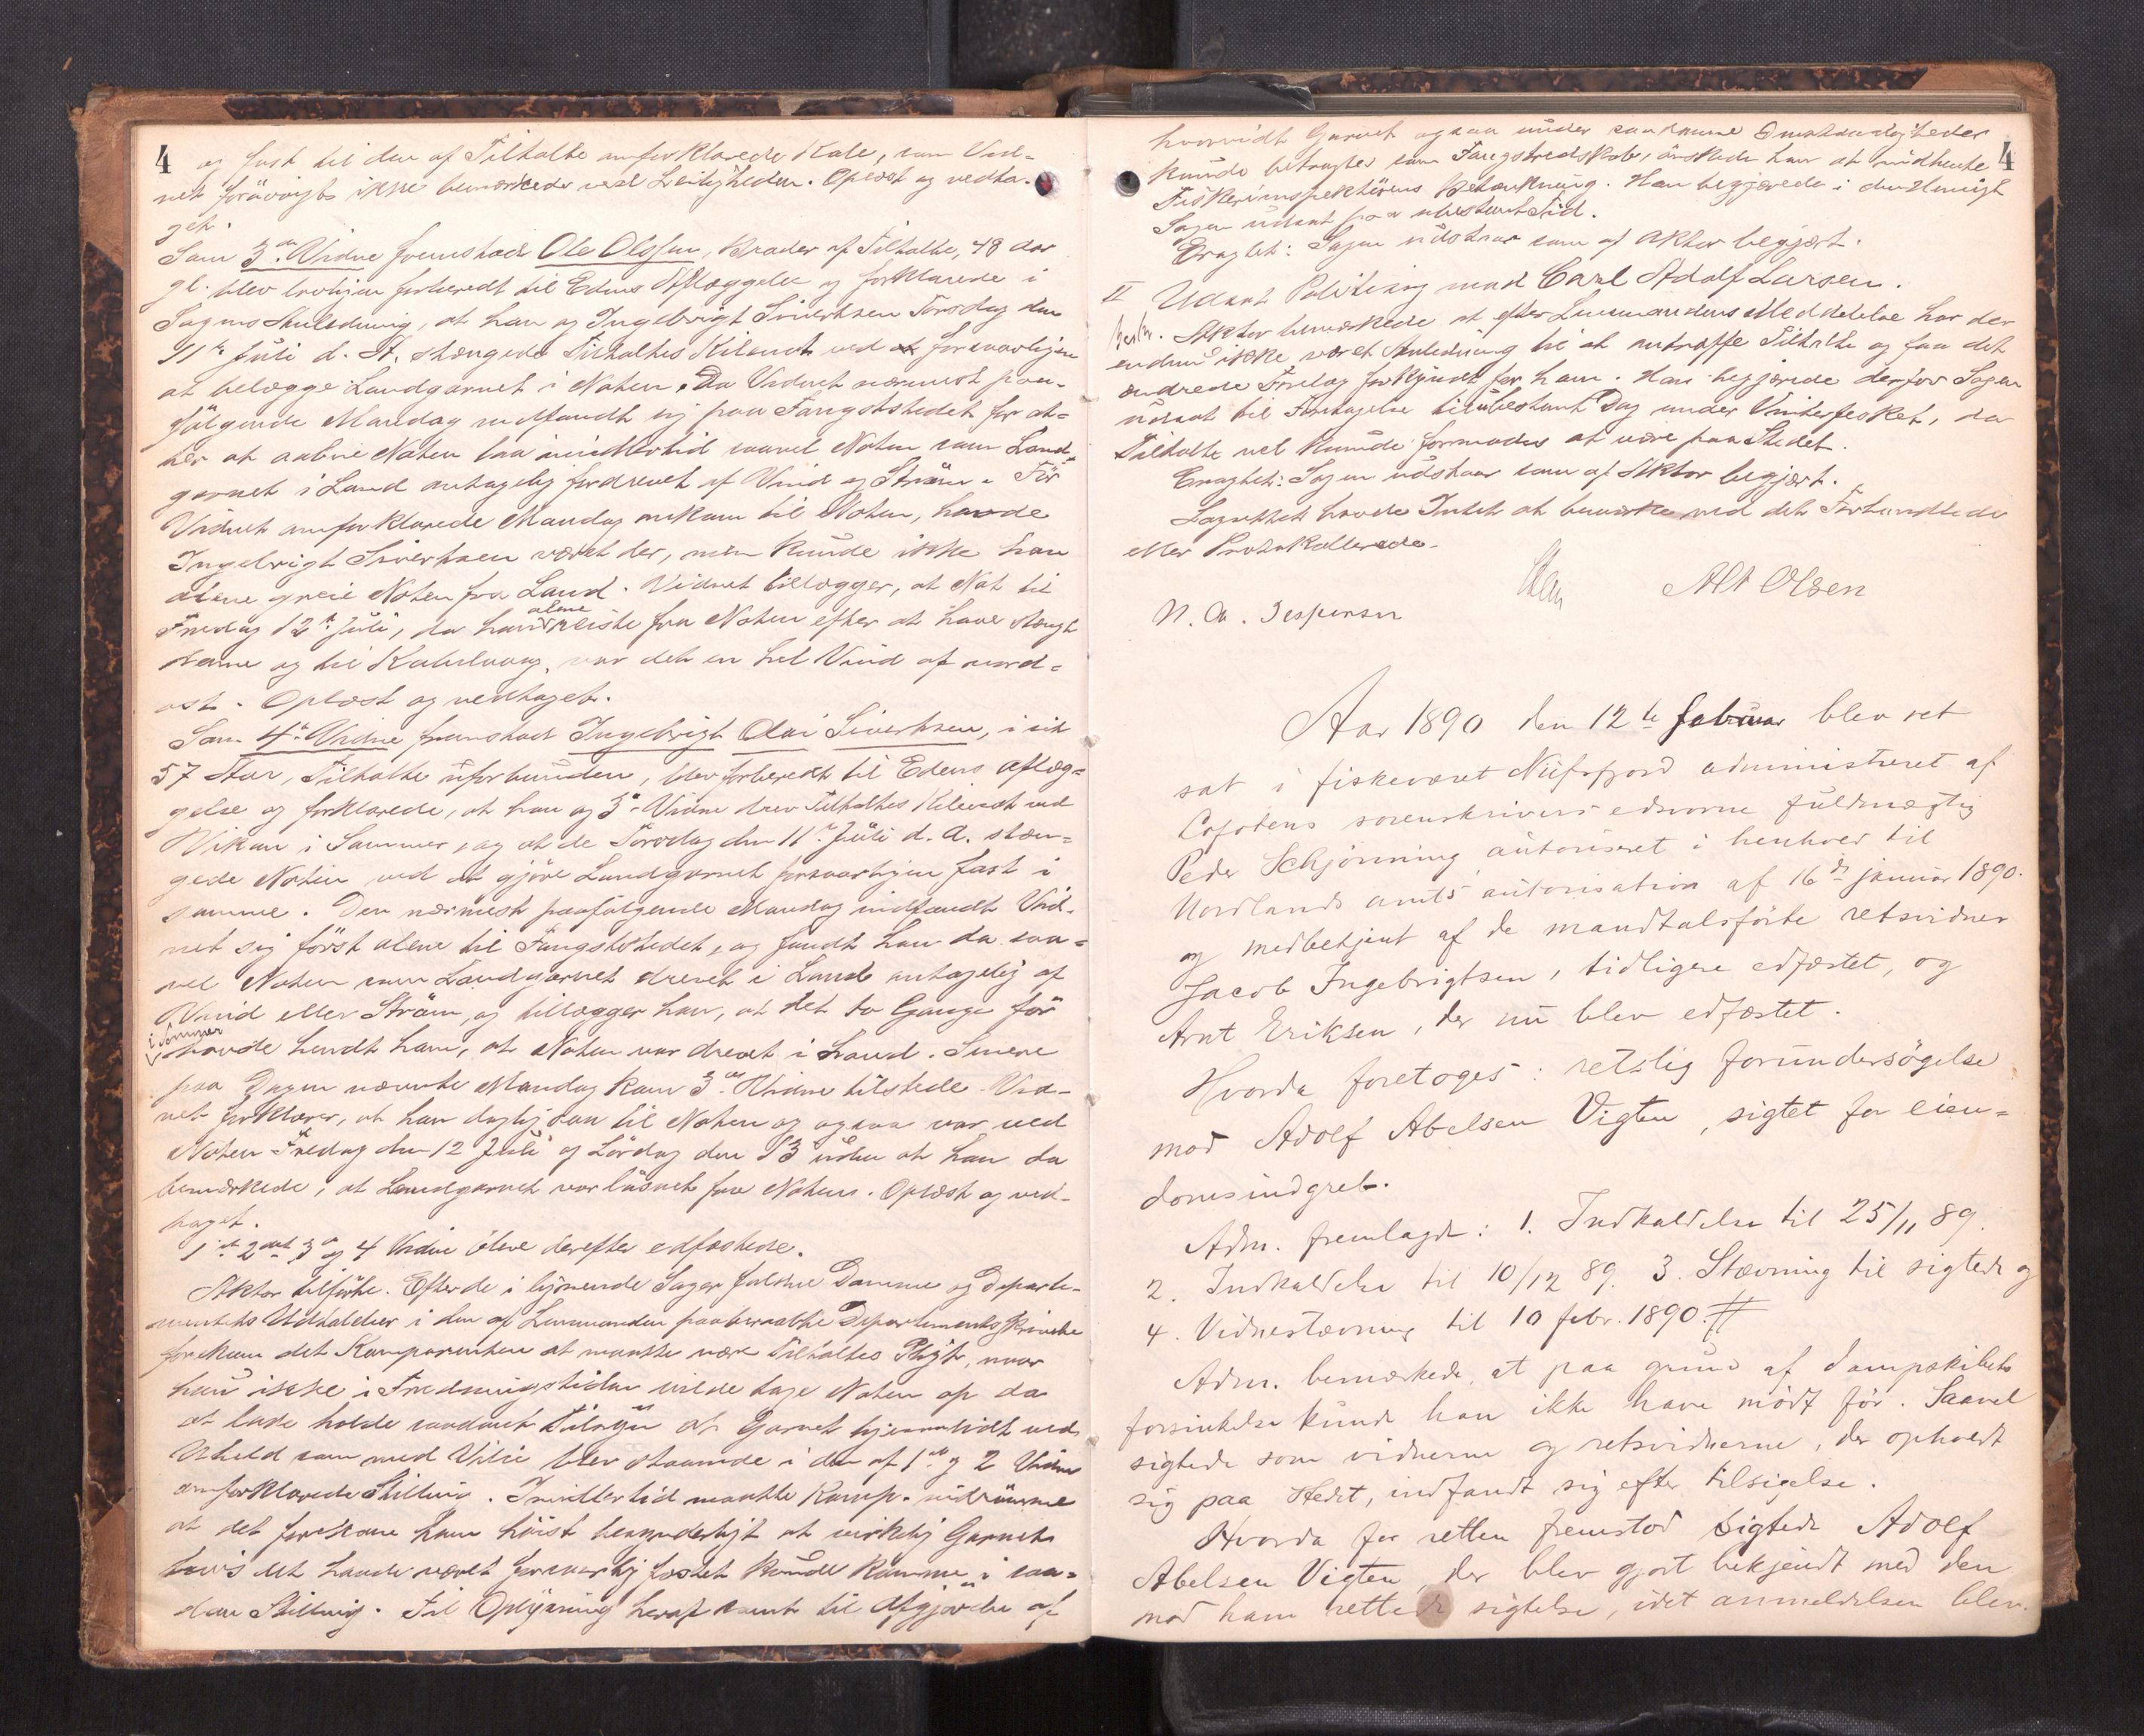 4
og fast til den af Tiltalte omforklarede Kale, som Vid-
net forövrigt ikke bemærkede ved Leiligheden. Oplæst og vedta-
get.
Som 3die Vidne fremstod Ole Olsen, Broder af Tiltalte, 48 Aar
gl. blev lovligen forberedt til Edens Aflæggelse og forklarede i
Sagens Anledning, at han og Ingebrigt Sivertsen Torsdag den
11te Juli d. A. stængede Tiltaltes Kilenot ved at forsvarligen
at belægge Landgarnet i Noten. Da Vidnet nærmest paa-
fölgende Mandag indfandt sig paa Fangststedet for at-
ter at aabne Noten laa imidlertid saavel Noten som Land-
garnet i Land antagelig fordrevet af Vind og Ström. För
Vidnet omforklarede Mandag ankom til Noten, havde
Ingebrigt Sivertsen været der, men kunde ikke han
alene greie Noten fra Land. Vidnet tillægger, at Nat til
Fredag 12te Juli, da han alene reiste fra Noten efter at have stængt
denne og til Kabelvaag, var det en hel Vind af nord-
ost. Oplæst og vedtaget.
Som 4de Vidne fremstod Ingebrigt Olai Sivertsen, i sit
57 Aar, Tiltalte uforbunden, blev forberedt til Edens aflæg-
gelse og forklarede, at han og 3die Vidne drev Tiltaltes Kilenot ved
Vikan i Sommer, og at de Torsdag den 11te Juli d. A. stæn-
gede Noten ved at gjöre Landgarnet forsvarligen fast i
samme. Den nærmest paafölgende Mandag indfandt Vid-
net sig först alene til Fangststedet, og fandt han da saa-
vel Noten som Landgarnet drevet i Land antagelig af
Vind eller Ström, og tillægger han, at det to Gange för
i Sommer havde hendt ham, at Noten var drevet i Land. Senere
paa Dagen nævnte Mandag kom 3die Vidne tilstede. Vid-
net forklarer, at han daglig saa til Noten og ogsaa var ved
Noten Fredag den 12 Juli og Lördag den 13 uden at han da
bemærkede, at Landgarnet var lösnet fra Noten. Oplæst og ved-
taget.
1ste 2det 3die og 4 Vidne bleve derefter edfæstede.
Aktor tilförte. Efter de i lignende Sager faldne Domme og Departe-
mentets Udtalelser i den af Lensmanden paaberaabte Departementsskrivelse
forekom det Komparenten at maatte være Tiltaltes Pligt, naar
han ikke i Fredningstiden vilde tage Noten op da
at lade holde saadant Tilsyn at Garnet hjemmeholdt ved
Uheld som med Vilie blev staaende i den af 1ste og 2 Vidne
omforklarede Stilling. Imidlertid maatte Komp. indrömme
at det forekom ham höist besynderligt at virkelig Garnet
hvis det havde været forsvarlig fæstet kunde komme i saa-
dan Stilling. Til Oplysning heraf samt til Afgjörelse af
4
hvorvidt Garnet ogsaa under saadanne Omstændigheder
kunde betragtes som Fangstredskab, önskede han at indhente
Fiskeriinspektörens Betænkning. Han begjærede i den Henseende
Sagen udsat paa ubestemt Tid.
Eragtet: Sagen udstaar som af Aktor begjært.
II Udsat Politisag mod Carl Adolf Larsen.
Aktor bemærkede at efter Lensmandens Meddelelse har der
endnu ikke været Anledning til at antræffe Tiltalte og faa det
ændrede Forelæg forkyndt for ham. Han begjærede derfor Sagen
udsat til Foretagelse til ubestemt Dag under Vinterfisket, da
Tiltalte vel kunde formodes at være paa Stedet.
Eragtet: Sagen udstaar som af Aktor begjært.
Lagrettet havde Intet at bemærke ved det Forhandlede
eller Protokollerede.
Alt Olsen
N. A. Jespersen
Aar 1890 den 12te februar blev ret
sat i fiskeværet Nufsfjord administreret af
Lofotens sorenskrivers edsvorne fuldmægtig
Peder Schjönning autoriseret i henhold til
Nordlands amts autorisation af 16de januar 1890.
og medbetjent af de mandtalsförte retsvidner
Jacob Ingebrigtsen, tidligere edfæstet, og
Arnt Eriksen, der nu blev edfæstet.
Hvorda foretoges: retslig forundersögelse
mod Adolf Abelsen Vigten, sigtet for eien-
domsindgreb.
Adm. fremlagde: 1. Indkaldelse til 25/11 89.
2. Indkaldelse til 10/12 89. 3. Stævning til sigtede og
4. Vidnestævning til 10 febr. 1890.
Adm. bemærkede, at paa grund af dampskibets
forsinkelse kunde han ikke have mödt för. Saavel
sigtede som vidnerne og retsvidnerne, der opholdt
sig paa stedet, indfandt sig efter tilsigelse.
Hvorda for retten fremstod sigtede Adolf
Abelsen Vigten, der blev gjort bekjendt med den
mod ham rettede sigtelse, idet anmeldelsen blev